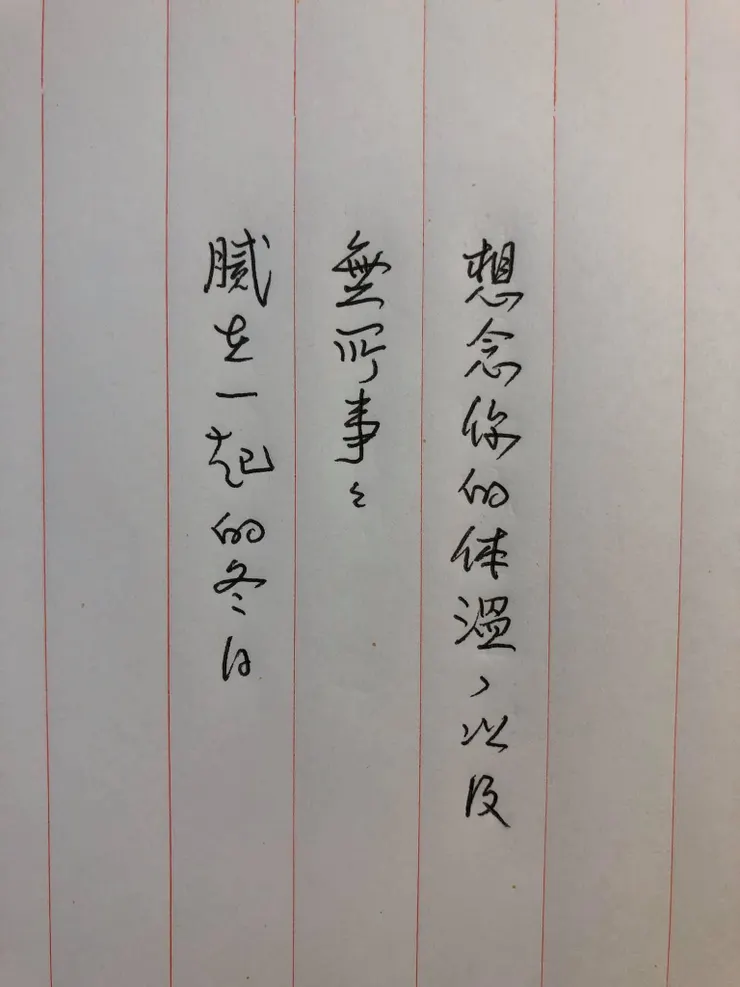 想念你的体溫，以及
無所事々
膩在一起的冬日